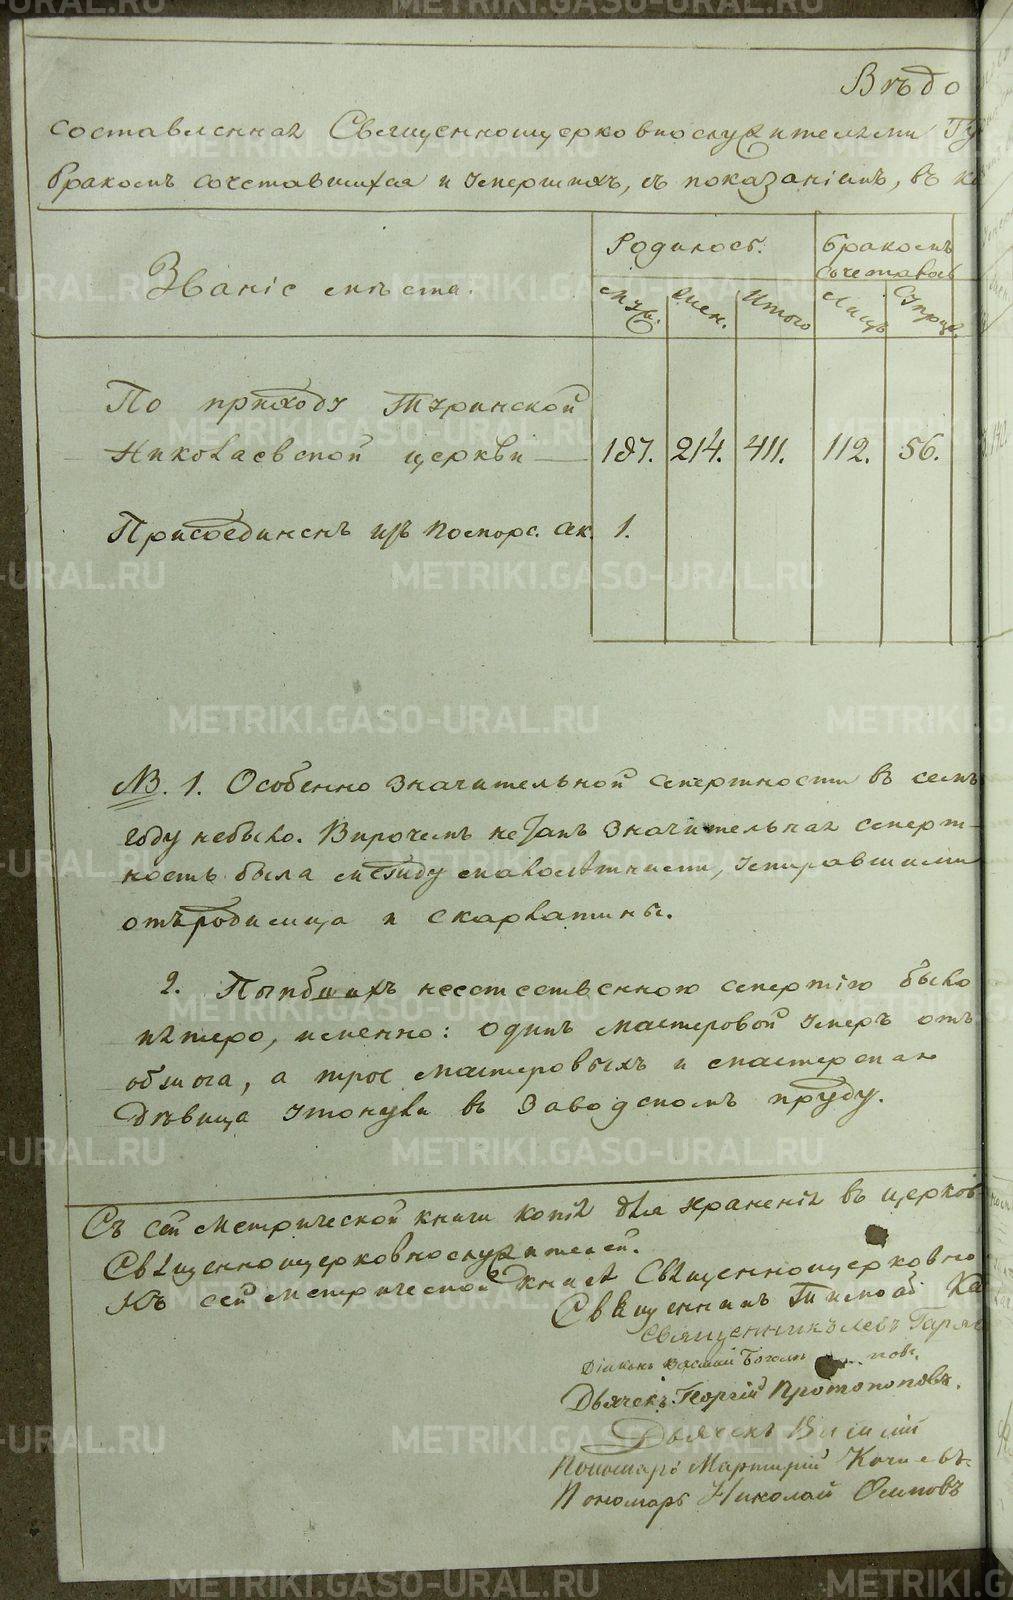 Вѣдо
составленная Священноцерковнослужителями Ту
бракомъ сочетавшихся и умершихъ, съ показаніемъ, въ ка
Званіе мѣста.
Родилось.
бракомъ сочеталось
Муж.
Жен.
Итого
Лицъ
Супруж.
По приходу Туринской
Николаевской церкви 197. 214. 411. 112. 56.
Присоединенъ изъ 1.
NB. 1. Особенно значительной смертности въ семъ
году небыло. Впрочемъ значительная смерт-
ность была между малолѣтними, умиравшими
отъ родимца и скарлатины.
2. Погибшихъ неестественною смертію было
пятеро, именно: одинъ мастеровой умеръ отъ
обжога, а трое мастеровыхъ и мастерская
дѣвица утонули въ заводскомъ пруду.
Съ сей метрической книги копія для храненія въ церков
Священноцерковнослужителей.
Къ сей метрической книгѣ Священноцерковно
Священникъ Тимофей Ка
Священникъ Левъ Гаря
Діаконъ Василий
Дьячекъ Георгій Протопоповъ.
Дьячекъ Василій
Пономарь Мартирій
Пономарь Николай Осиповъ
METRIKI.GASO-URAL.RU